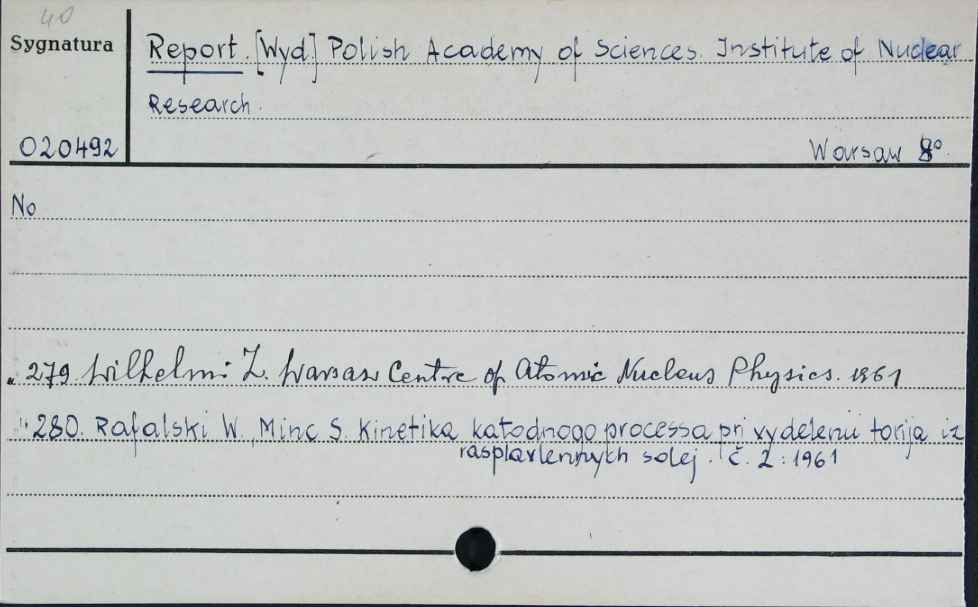 40
Sygnatura
Report. [Wyd.] Polish Academy of Sciences. Institute of Nuclear
Research.
020492
Warsaw 8°.
No
" 279 Wilhelmi Z. Warsaw Centre of Atomic Nucleus Physics. 1961
" 280. Rafalski W., Minc S. Kinetika katodnogo processa pri vydelenii torija iz
rasplavlennych solej. č. 2 : 1961